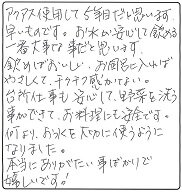 アクアス使用して5年目だと思います。
早いものです。お水が安心して飲める
一番大事な事だと思います。
飲めばおいしい、お風呂に入れば
やさしくて、チクチク感がない。
台所仕事も安心して、野菜を洗う
事ができて、お料理にも安全です。
何より、お水を大切に使うように
なりました。
本当にありがたい事ばかりで
嬉しいです！